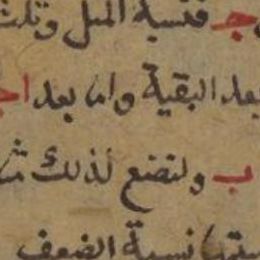 جـ فنسبة المثل وثلث
بعد البقية واما بعد ا
ب ولنضع لذلك مثا
نسبة الضعف